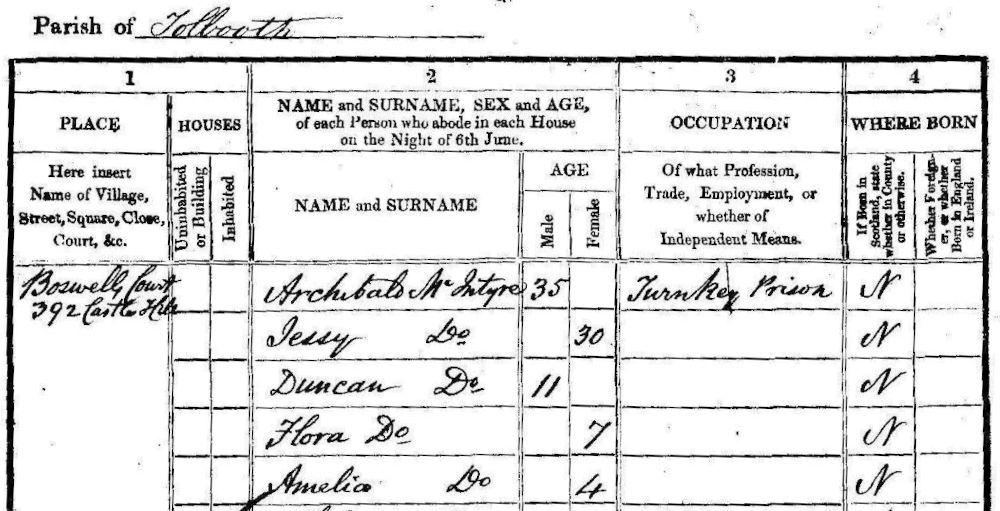 Parish of Tolbooth
1 2 3 4
PLACE
HOUSES
NAME and SURNAME, SEX and AGE,
of each Person who abode in each House
on the Night of 6th June.
OCCUPATION
WHERE BORN
Here insert
Name of Village,
Street, Square, Close,
Court, &c.
Uninhabited
or Building
Inhabited
NAME and SURNAME
AGE
Male
Female
Of what Profession,
Trade, Employment, or
whether of
Independent Means.
If Born in
Scotland, state
whether in County
or otherwise.
Whether Foreign-
er, or whether
Born in England
or Ireland.
Boswells Court
392 Castle Hill
Archibald McIntyre 35 Turnkey Prison N
Jessy Do 30 N
Duncan Do 11 N
Flora Do 7 N
Amelia Do 4 N